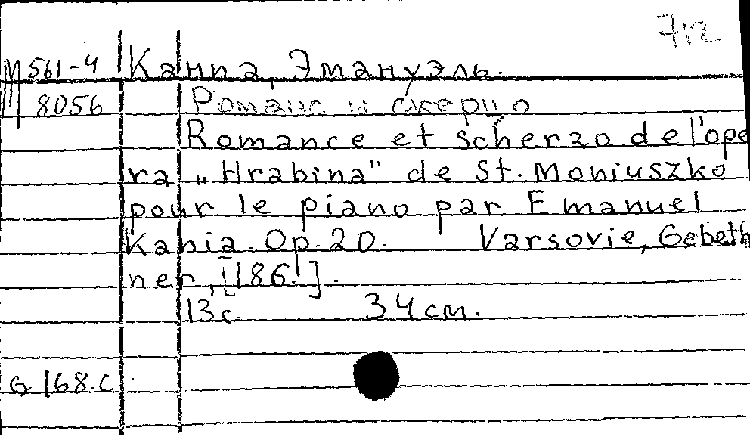 7112
М 561-4 Каниа, Эмануэль.
8056 Романс и скерцо
Romance et scherzo de l'ope
ra „Hrabina" de St. Moniuszko
pour le piano par Emanuel
Kania. Op. 20. Varsovie, Gebeth
ner, [186.].
13 с. 34 см.
G 168.C